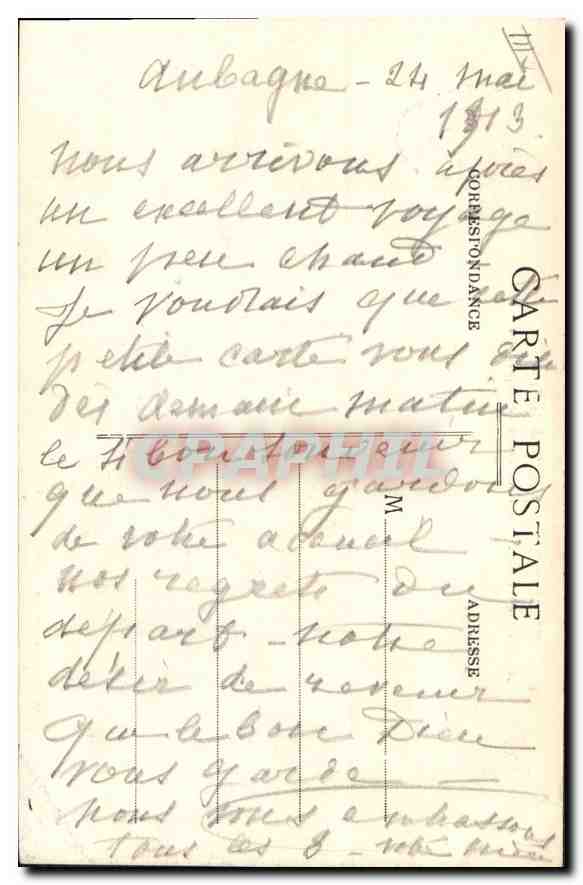 Aubagne - 24 mai
1913
Nous arrivons après
un excellent voyage
un peu chaud
Je voudrais que cette
petite carte vous dise
dès demain matin
le si bon souvenir
que nous gardons
de votre accueil
nos regrets du
départ - notre
désir de revenir
Que le bon Dieu
vous garde
nous vous embrassons
tous les 3 - votre
CARTE POSTALE
CORRESPONDANCE
ADRESSE
M
CPAPHIL